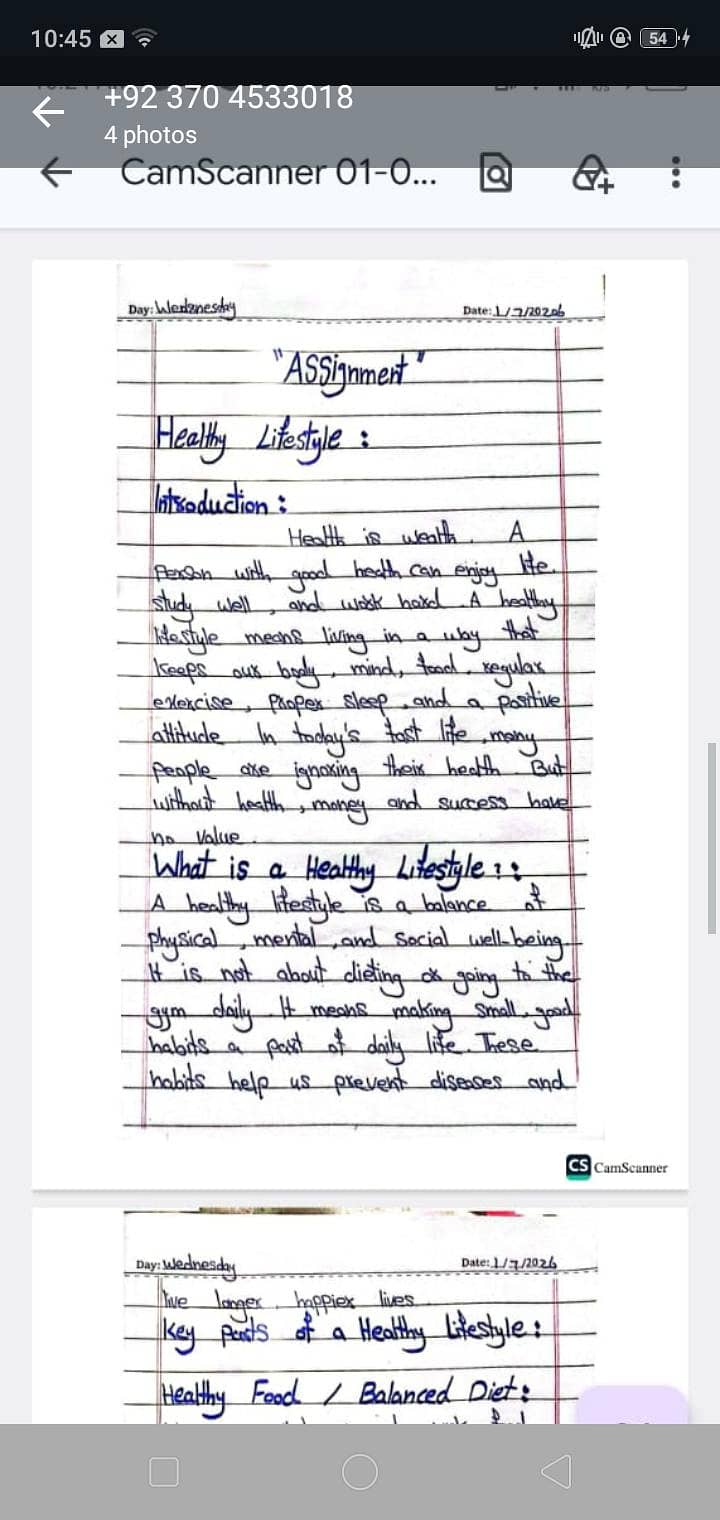 10:45
54
+92 370 4533018
4 photos
CamScanner 01-0...
Day: Wednesday
Date: 1/7/2026
"Assignment"
Healthy Lifestyle :
Introduction :
Health is wealth. A
Person with good health can enjoy life.
study well, and work hard. A healthy
lifestyle means living in a way that
keeps our body, mind, food, regular
exercise, proper sleep, and a positive
attitude In today's fast life, many
people are ignoring their health. But
without health, money and success have
no value.
What is a Healthy Lifestyle ? :
A healthy lifestyle is a balance of
physical, mental, and social well-being.
It is not about dieting or going to the
gym daily. It means making small, good
habits a part of daily life. These
habits help us prevent diseases and
CS CamScanner
Day: Wednesday
Date: 1/7/2026
live longer, happier lives.
Key parts of a Healthy Lifestyle :
Healthy Food / Balanced Diet :